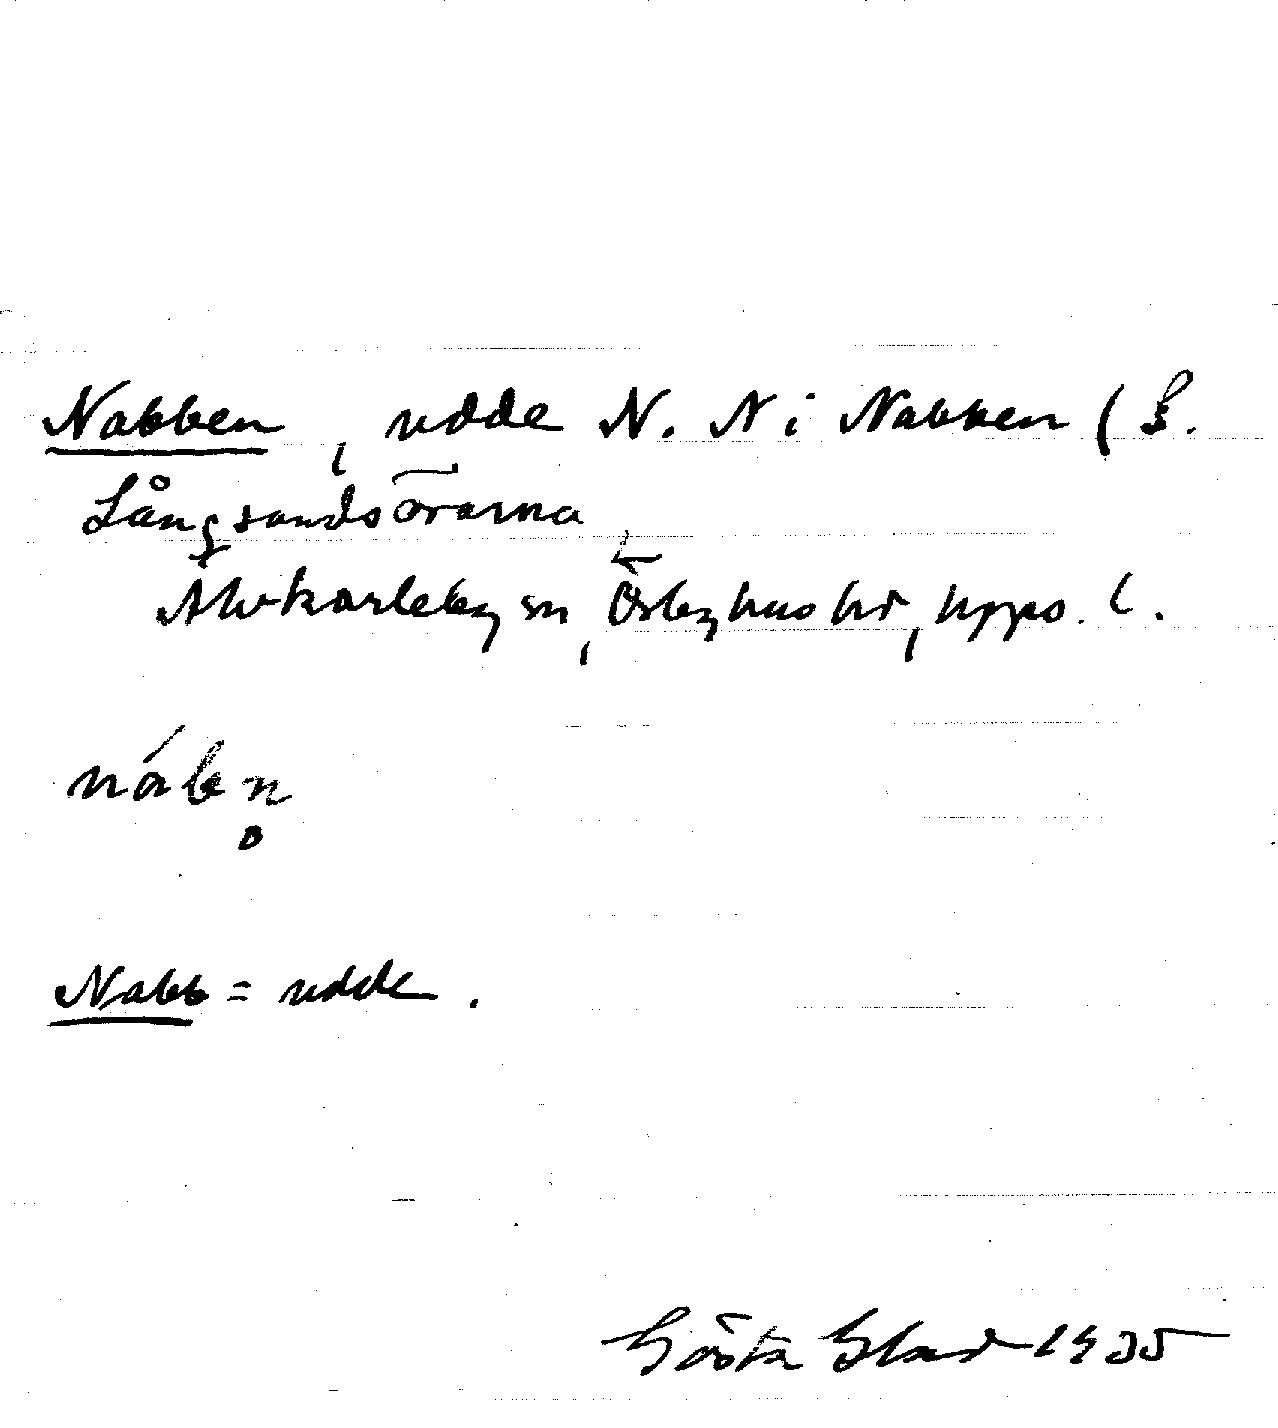 Nabben, udde N. N i Nabben (S.
Långsandsörarna
Älvkarleby sn, Örbyhus hd, Upps. l.
nábn̥
Nabb = udde.
Gösta Blad 1935